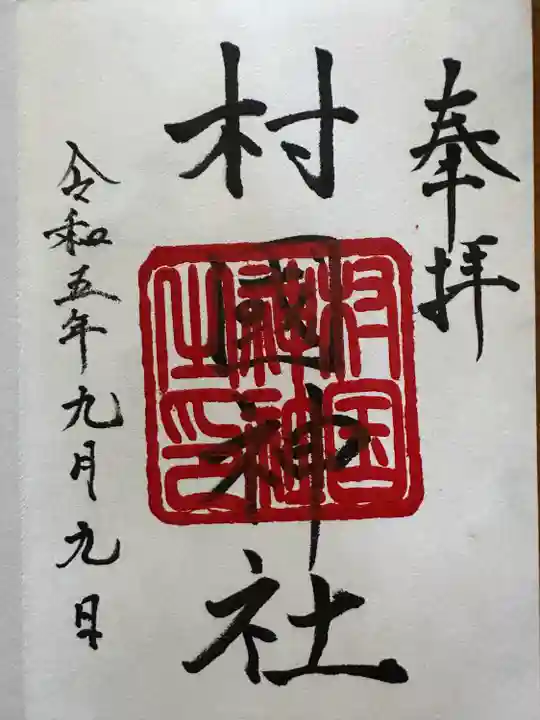 奉拝
村国神社
村国
神社
之印
令和五年九月九日